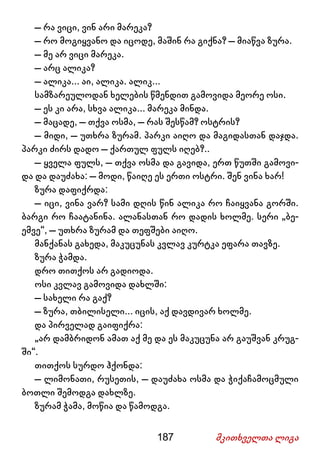 — რა ვიცი, ვინ არი მარეკა?
— რო მოგიყვანო და იცოდე, მაშინ რა გიქნა? — მიაწვა ზურა.
— მე არ ვიცი მარეკა.
— არც ალიკა?
— ალიკა... აი, ალიკა. ალიკ...
სამზარეულოდან ხელების წმენდით გამოვიდა მეორე ოსი.
— ეს კი არა, სხვა ალიკა... მარეკა მინდა.
— მაცადე, — თქვა ოსმა, — რას შესწამ? ოსტრის?
— მიდი, — უთხრა ზურამ. პარკი აიღო და მაგიდასთან დაჯდა.
პარკი ძირს დადო — ქართულ ფულს იღებ?..
— ყველა ფულს, — თქვა ოსმა და გავიდა, ერთ წუთში გამოვი-
და და დაუძახა: — მოდი, წაიღე ეს ერთი ოსტრი. შენ ვინა ხარ!
ზურა დაფიქრდა:
— იცი, ვინა ვარ? სამი დღის წინ ალიკა რო ჩაიყვანა გორში.
ბარგი რო ჩაატანინა. ალანასთან რო დადის ხოლმე. სერი „ბე-
ემვე“, — უთხრა ზურამ და თეფშები აიღო.
მანქანას გახედა, მაკუცუნას კვლავ კურტკა ეფარა თავზე.
ზურა ჭამდა.
დრო თითქოს არ გადიოდა.
ოსი კვლავ გამოვიდა დახლში:
— სახელი რა გაქ?
— ზურა, თბილისელი... იცის, აქ დავდივარ ხოლმე.
და პირველად გაიფიქრა:
„არ დამბრიდონ ამათ აქ მე და ეს მაკუცუნა არ გაუშვან კრუგ-
ში“.
თითქოს სურდო ჰქონდა:
— ლიმონათი, რუსეთის, — დაუძახა ოსმა და ჭიქაჩამოცმული
ბოთლი შემოდგა დახლზე.
ზურამ ჭამა, მოწია და წამოდგა.
187 მკითხველთა ლიგა